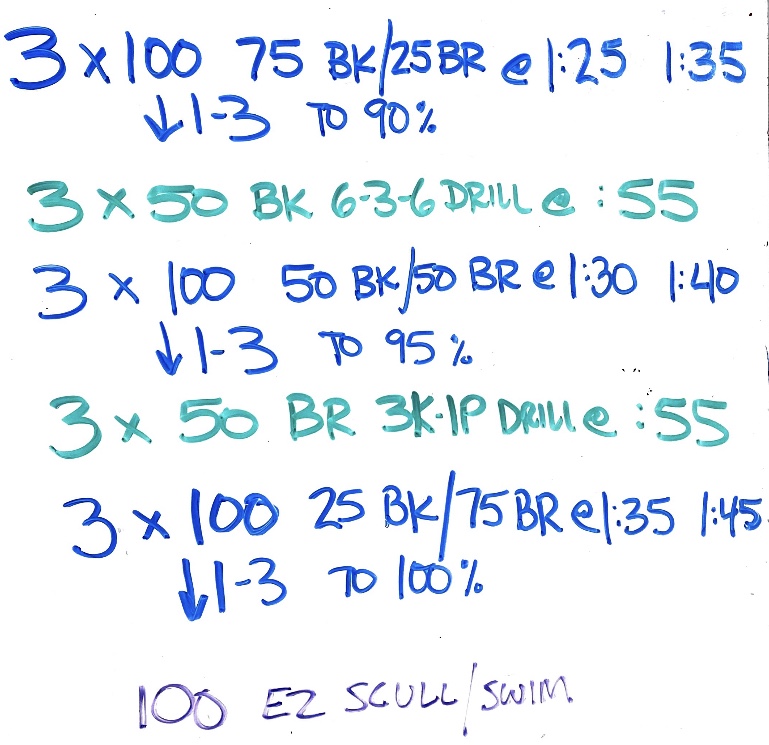 3 x 100 75 BK/25 BR @ 1:25 1:35
↓1-3 TO 90%
3 x 50 BK 6-3-6 DRILL @ :55
3 x 100 50 BK/50 BR @ 1:30 1:40
↓1-3 TO 95%
3 x 50 BR 3K-1P DRILL @ :55
3 x 100 25 BK/75 BR @ 1:35 1:45
↓1-3 TO 100%
100 EZ SCULL/SWIM